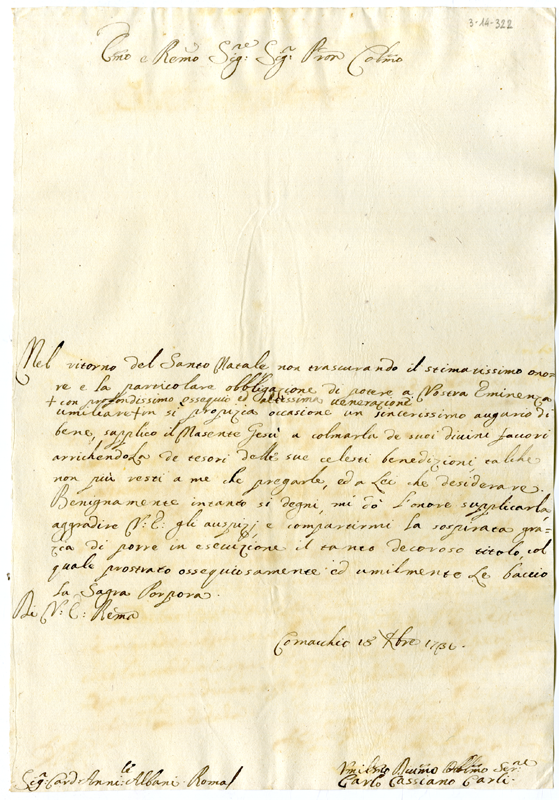 3-14-322
Emo e Remo Sig:re Sig:r Pron Colmo
Nel ritorno del Santo Natale non trascurando il stimatissimo ono=
re e la particolare obbligazione di potere a Vostra Eminenza
+ con profondissimo ossequio ed altissima venerazione
umiliare + in si propizia occasione un sincerissimo augurio di
bene, supplico il Nascente Gesù a colmarla de suoi divini favori
arrichendola de tesori delle sue celesti benedizioni talche
non più resti a me che pregarle, ed a Lei che desiderare.
Benignamente intanto si degni, mi dò l'onore supplicarla,
aggradire V: E: gli auspizj e compartirmi la sospirata gra=
zia di porre in esecuzione il tanto decoroso titolo, col
quale prostrato ossequiosamente ed umilmente Le baccio
la Sagra Porpora.
Di V: E: Rema
Comachio 18 Xbre 1731.
Sig:r Card Anni:le Albani Roma
Umilmo Obblmo Ser:re
Carlo Cassiano Carli